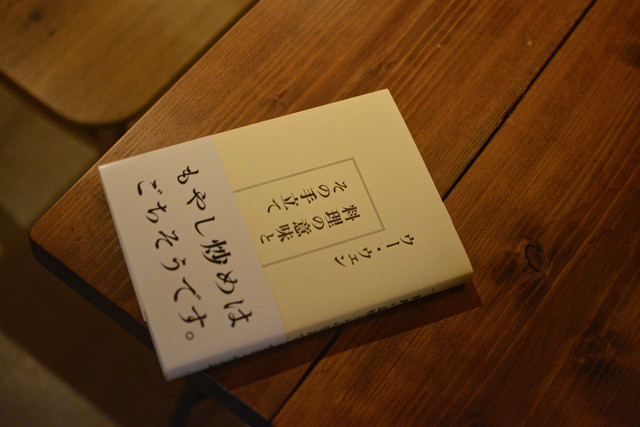 料理の意味と
その手立て
ウー・ウェン
もやし炒めは
ごちそうです。